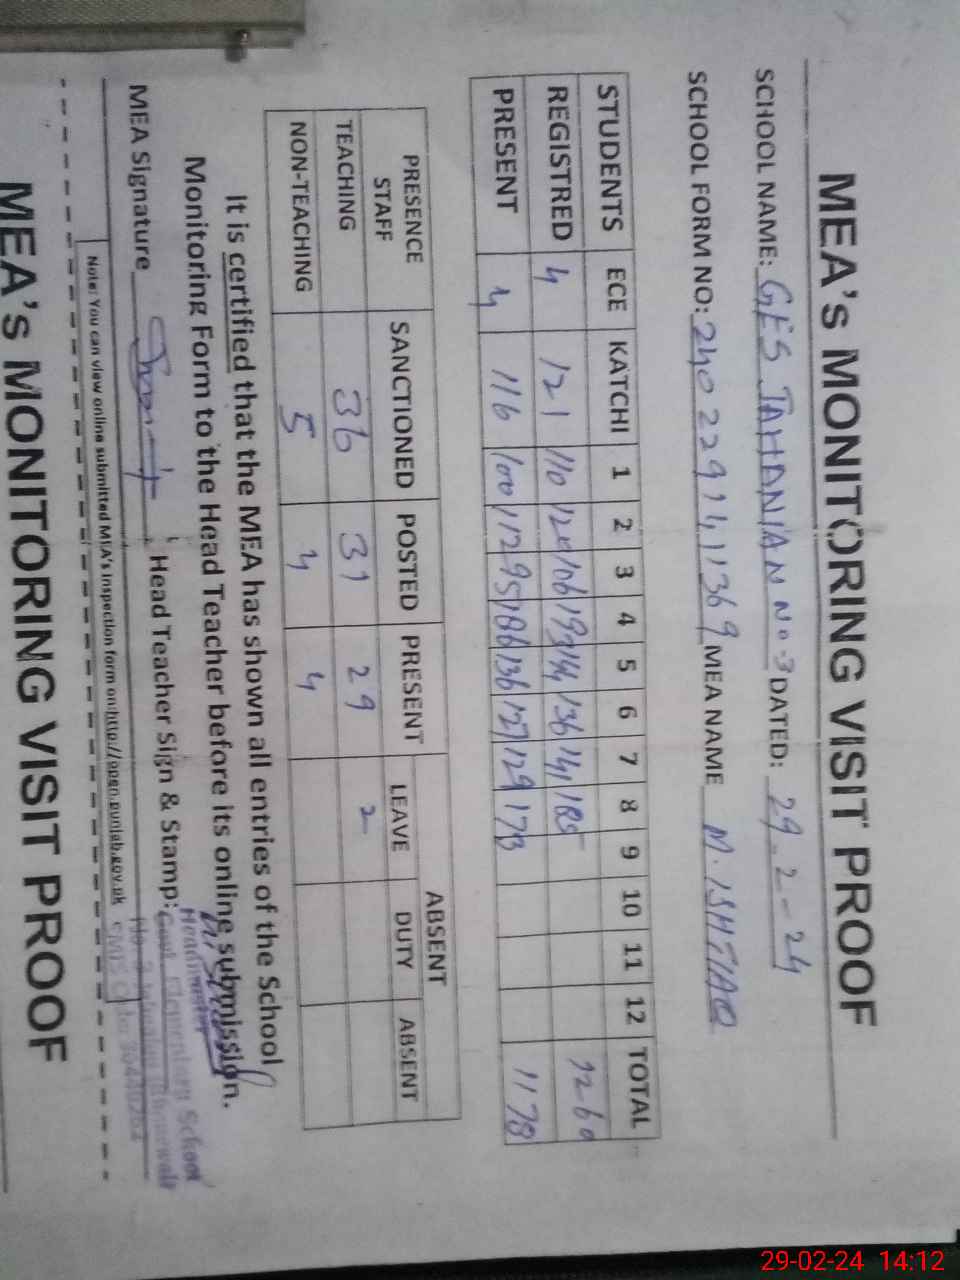 MEA's MONITORING VISIT PROOF
SCHOOL NAME: GES JAHANIAN No-3 DATED: 29-2-24
SCHOOL FORM NO: 2402291411369 MEA NAME M. ISHTIAQ
STUDENTS ECE KATCHI 1 2 3 4 5 6 7 8 9 10 11 12 TOTAL
REGISTRED 4 121 110 120 106 193 144 136 141 185 1260
PRESENT 4 116 100 112 95 186 136 127 129 173 1178
PRESENCE STAFF SANCTIONED POSTED PRESENT ABSENT
LEAVE DUTY ABSENT
TEACHING 36 31 29 2
NON-TEACHING 5 4 4
It is certified that the MEA has shown all entries of the School
Monitoring Form to the Head Teacher before its online submission.
MEA Signature Head Teacher Sign & Stamp:
Headmaster
Govt. Elementary School
No. 3 Jahanian (Khanewal)
Note: You can view online submitted MEA's inspection form on:http://open.punjab.gov.pk
MEA's MONITORING VISIT PROOF
29-02-24 14:12